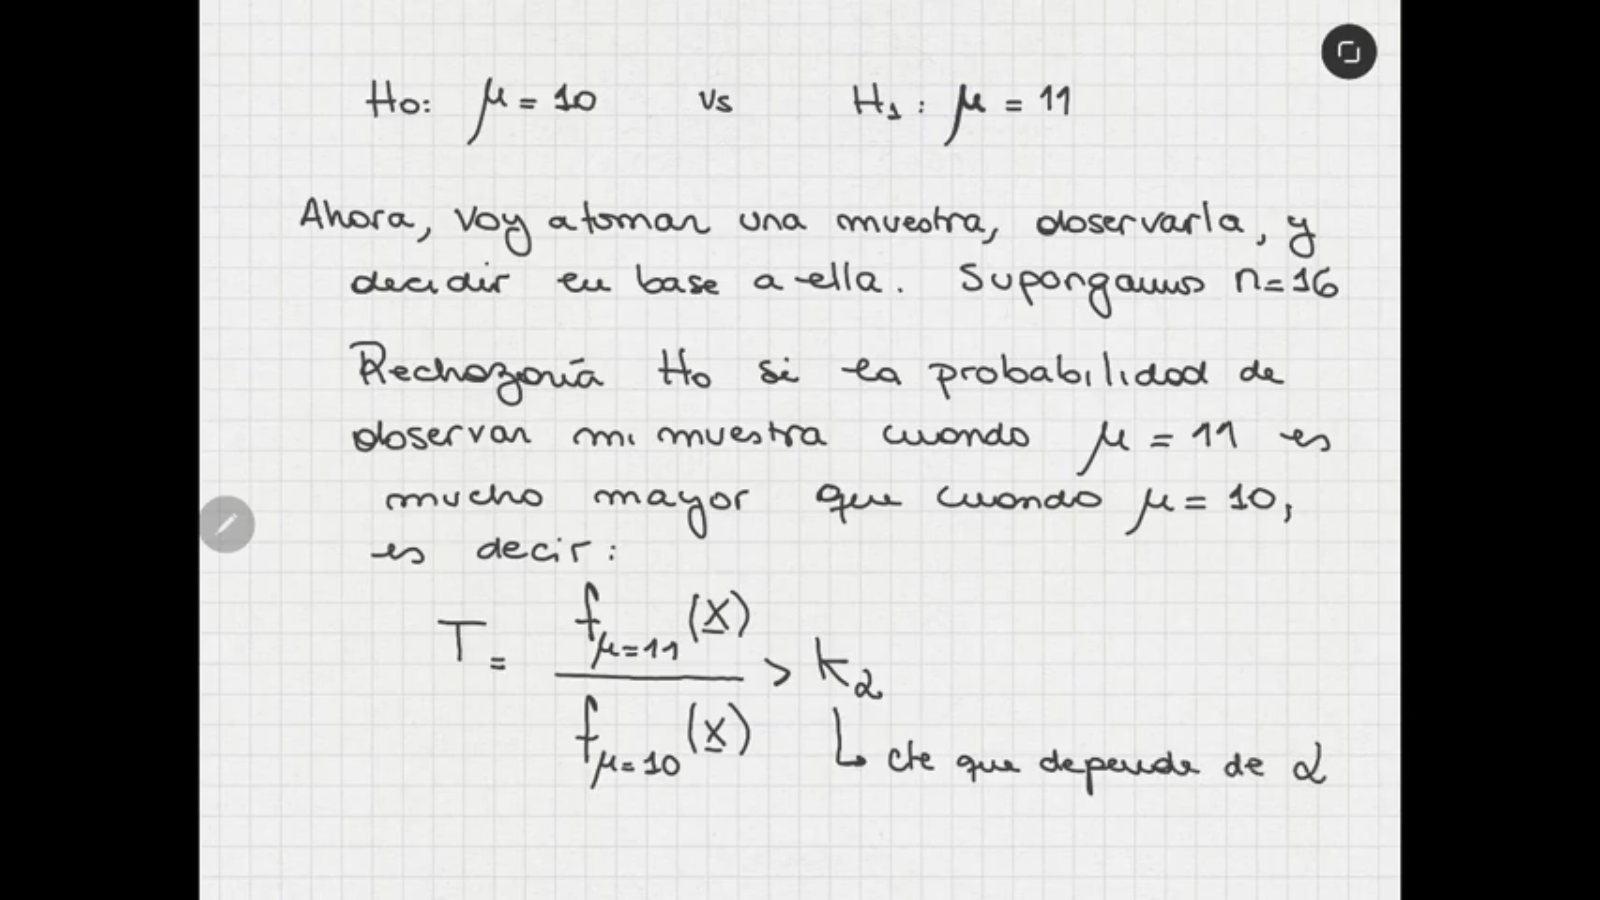 Ho: μ = 10 vs H1: μ = 11
Ahora, voy a tomar una muestra, observarla, y
decidir en base a ella. Supongamos n=16
Rechazaría Ho si la probabilidad de
observar mi muestra cuando μ = 11 es
mucho mayor que cuando μ = 10,
es decir:
T = f μ=11 (X) / f μ=10 (X) > kα
↳ cte que depende de α